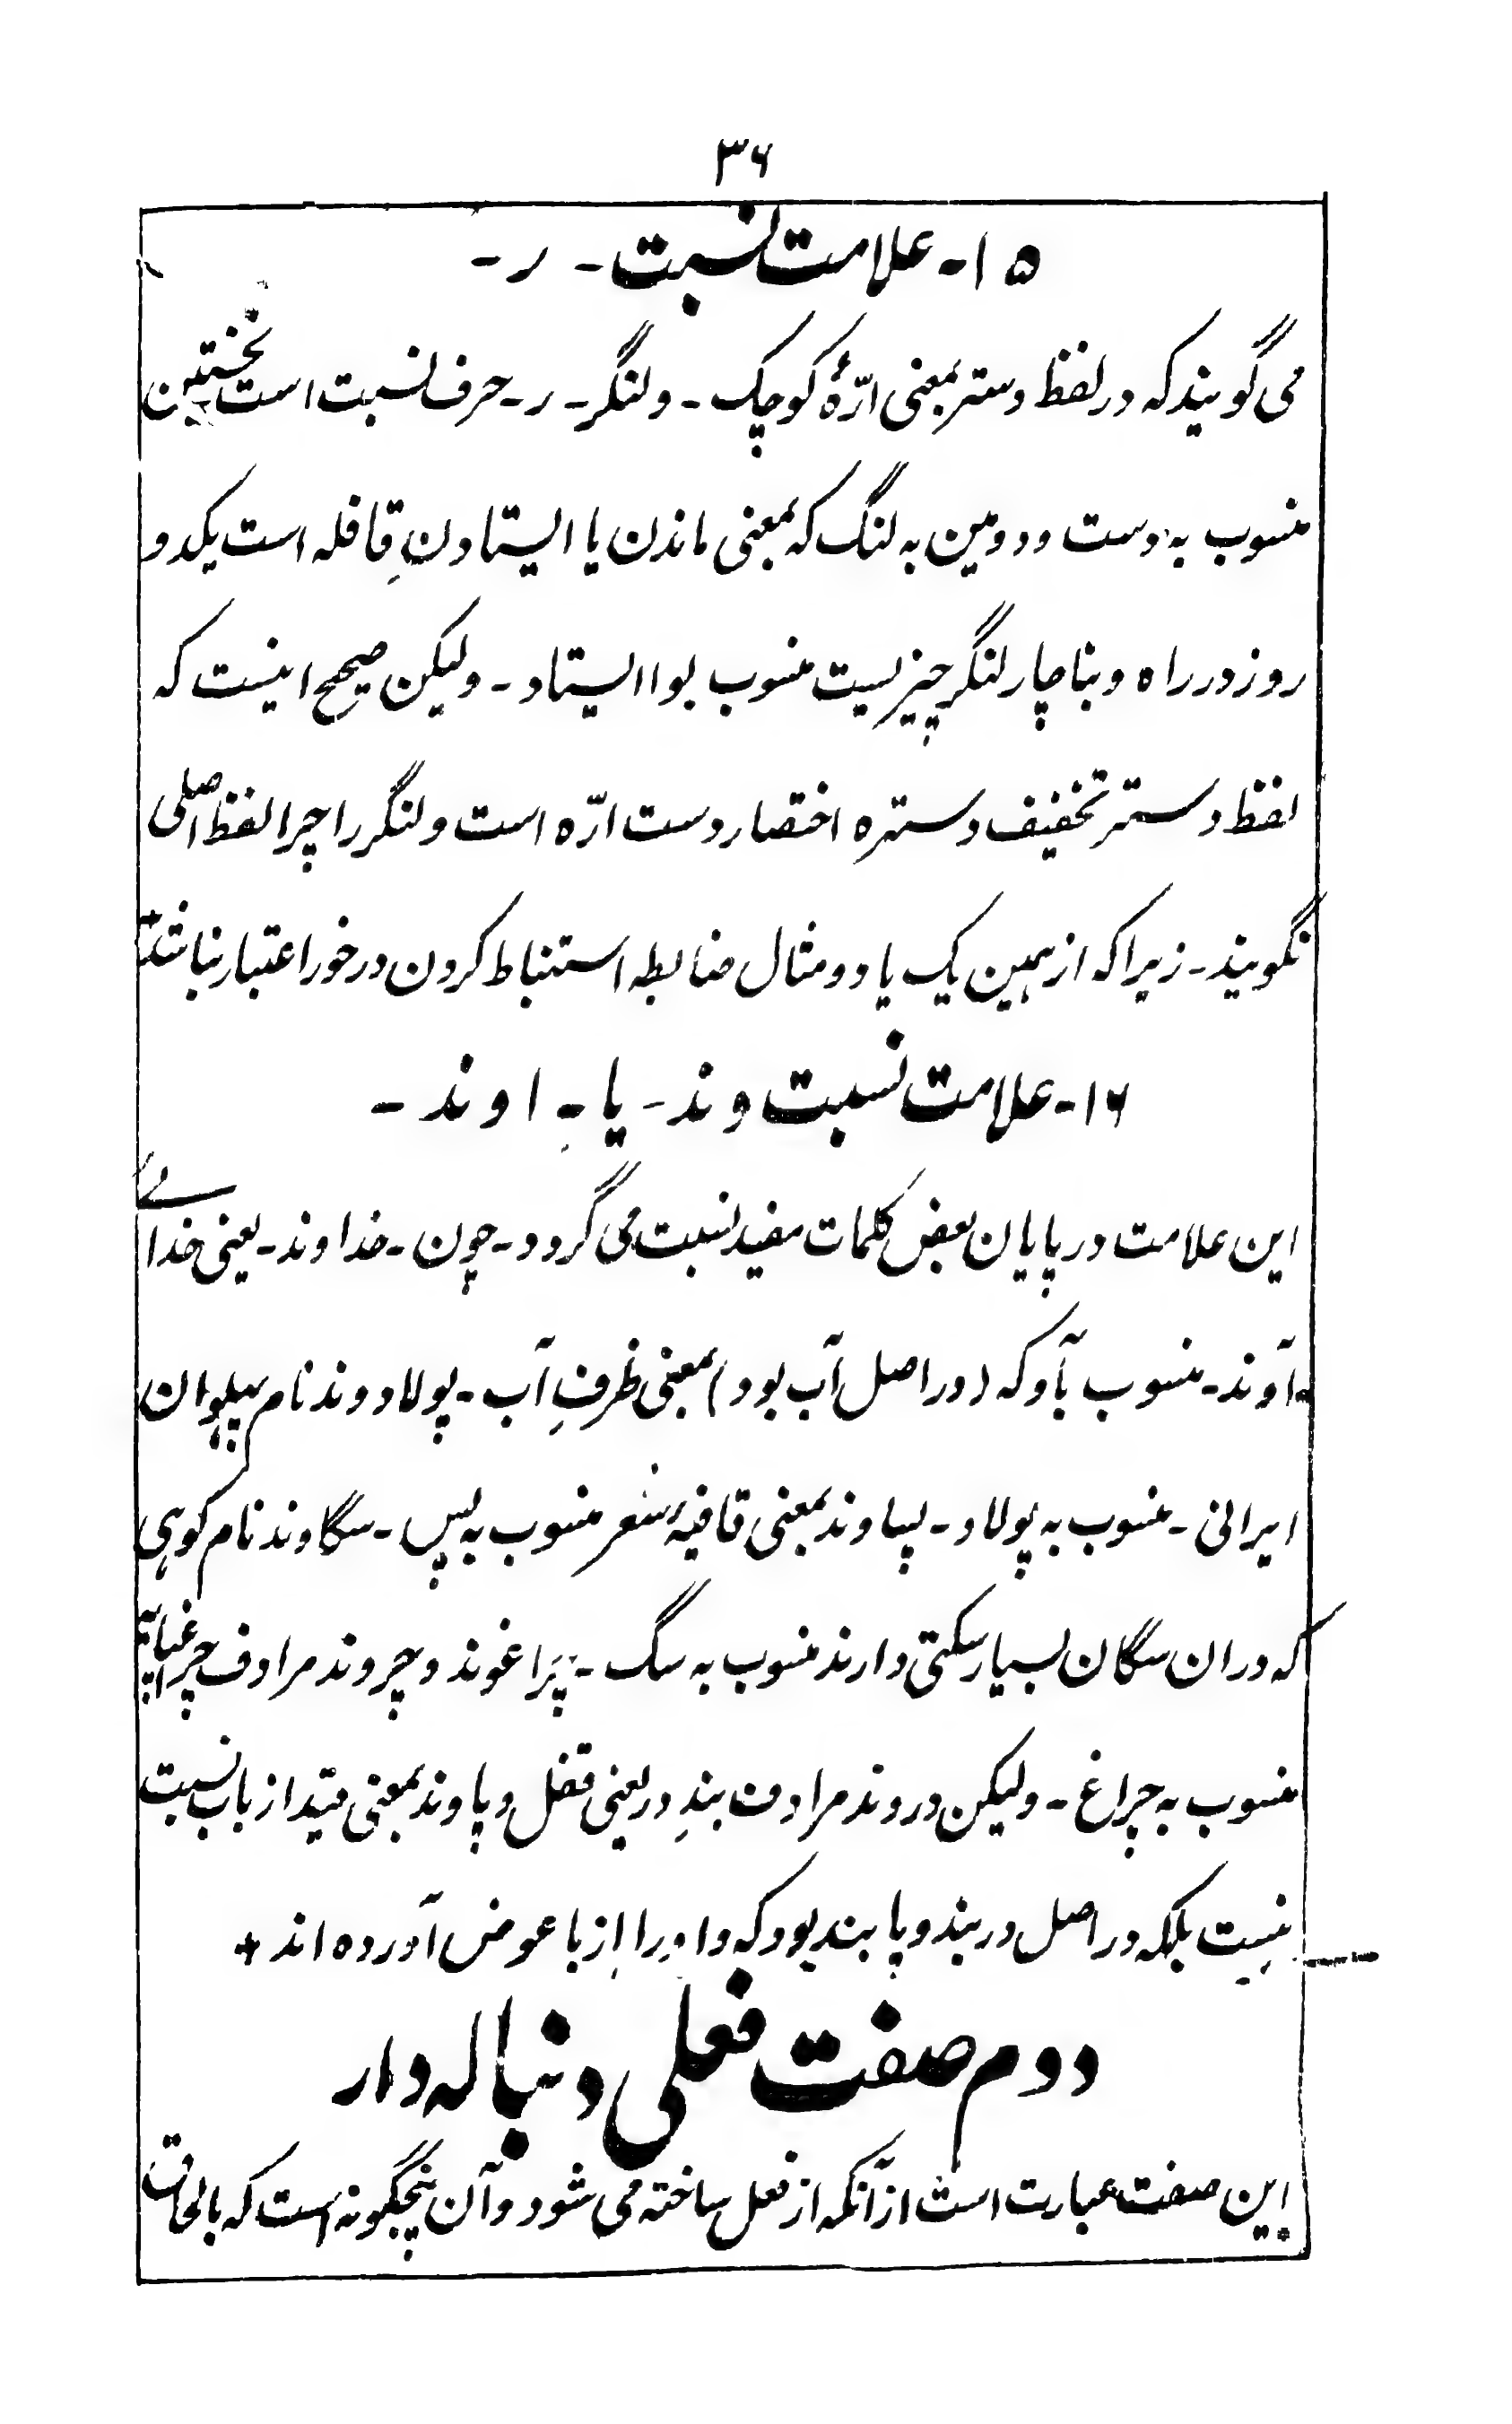 ۳۶
۱۵- علامت نسبت - ر -
می گویند که در لفظ دستر بمعنی ارّۀ کوچک - و لنگر - ر - حرف نسبت است نختین
منسوب به دست و دومین به لنگ که بمعنی ماندن یا ایستادنِ قافله است یکدو
روز در راه و بناچار لنگر چیزیست منسوب بوا ایستاد - ولیکن صحیح اینست که
لفظ دستر تخفیف دستره اختصار دست ارّه است و لنگر را چرا لفظ اصلی
نگویند - زیرا که از همین یک یا دو مثال ضابطه استنباط کردن در خور اعتبار نباشد
۱۶- علامت نسبت وند - یا - اوند -
این علامت در پایان بعض کلمات مفید نسبت می گردد - چون - خداوند - یعنی خدائے
آوند - منسوب بآو که (در اصل آب بود) بمعنی ظرفِ آب - پولادوند نام پہلوان
ایرانی - منسوب به پولاد - پساوند بمعنی قافیۂ شعر منسوب به پس - سگاوند نام کوہی
که دران سگان بسیار سکنی دارند منسوب به سگ - پَراغوند و چروند مرادف چرغپایہ
منسوب به چراغ - ولیکن دروند مرادف بندِ در یعنی قفل و پاوند بمعنی قید از باب نسبت
نیست بلکه در اصل دربند و پابند بود که واو را از با عوض آورده اند +
دوم صفت فعلی دنباله دار
این صفت عبارت است ازآنکه از فعل ساخته می شود و آن پنجگونه است که بالحاق